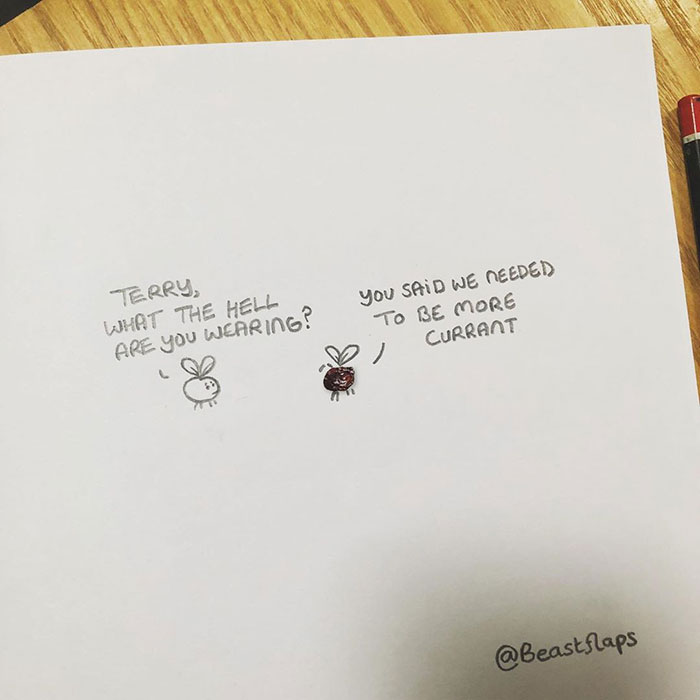 TERRY,
WHAT THE HELL
ARE YOU WEARING?
YOU SAID WE NEEDED
TO BE MORE
CURRANT
@Beastflaps